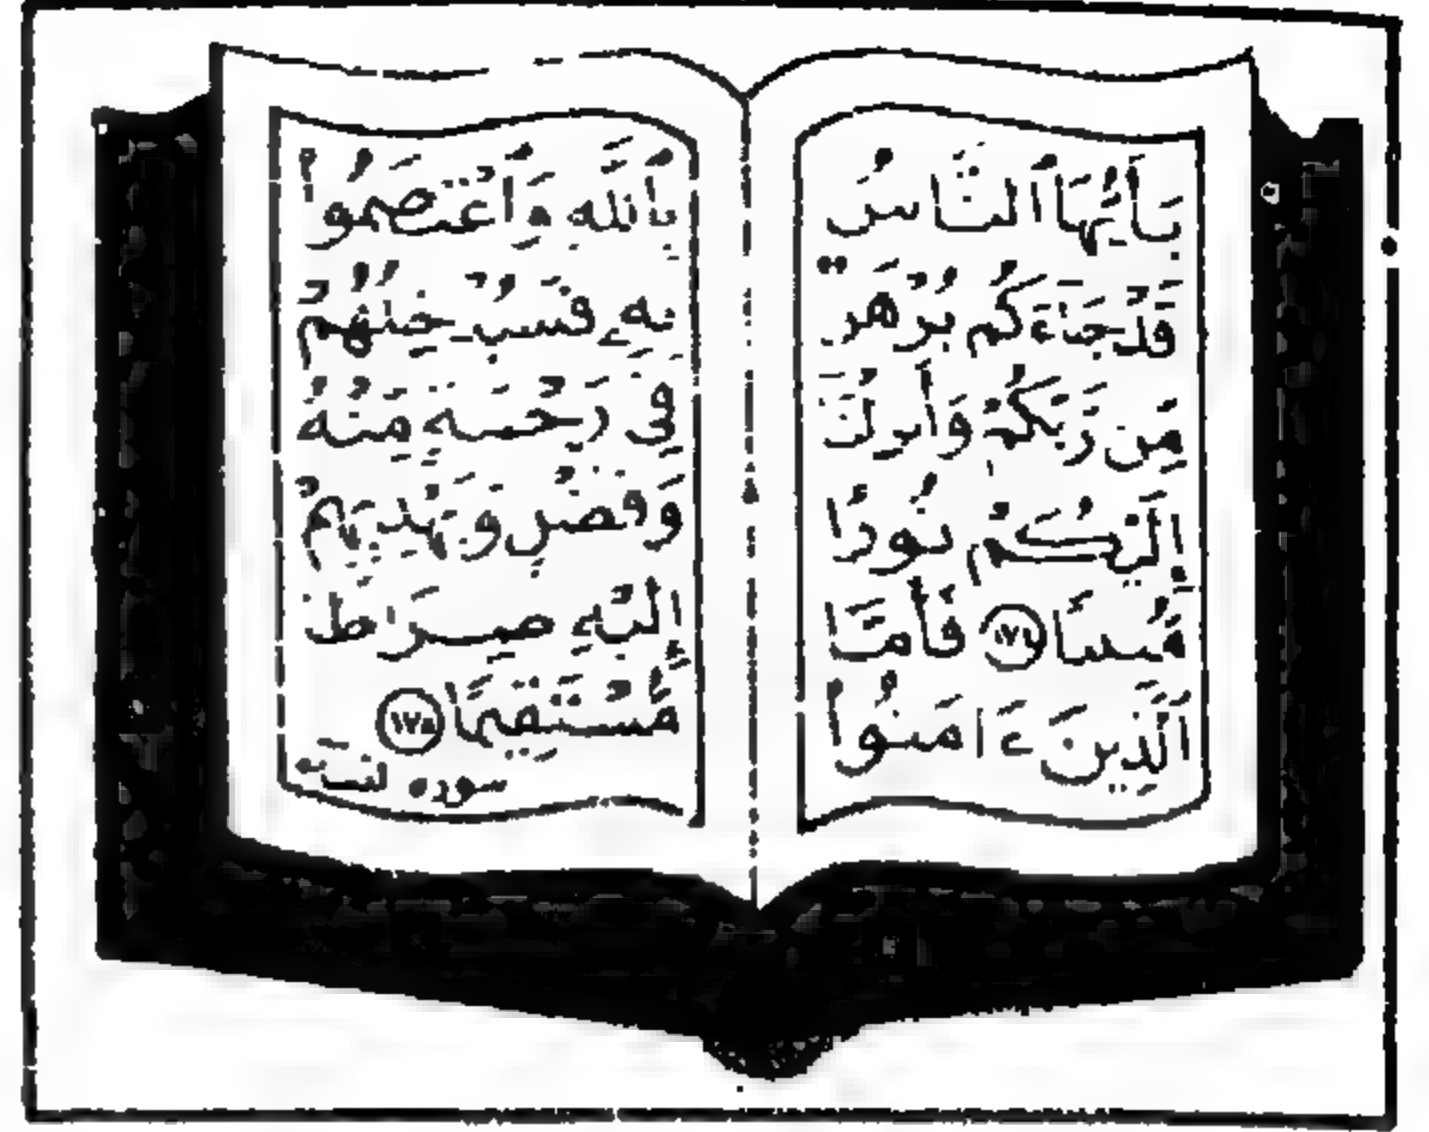 يَٰٓأَيُّهَا ٱلنَّاسُ
قَدْ جَآءَكُم بُرْهَٰنٌ
مِّن رَّبِّكُمْ وَأَنزَلْنَآ
إِلَيْكُمْ نُورًا
مُّبِينًا ﴿١٧٤﴾ فَأَمَّا
ٱلَّذِينَ ءَامَنُوا۟
بِٱللَّهِ وَٱعْتَصَمُوا۟
بِهِۦ فَسَيُدْخِلُهُمْ
فِى رَحْمَةٍ مِّنْهُ
وَفَضْلٍ وَيَهْدِيهِمْ
إِلَيْهِ صِرَٰطًا
مُّسْتَقِيمًا ﴿١٧٥﴾
سوره